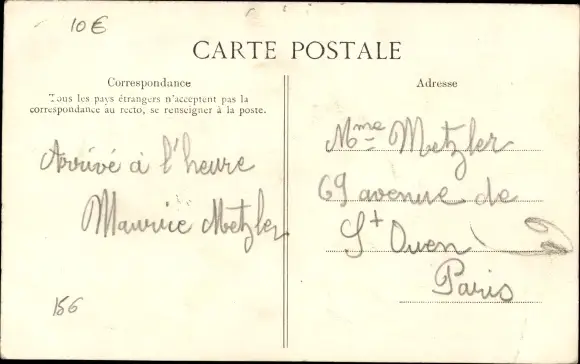 10€
CARTE POSTALE
Correspondance
Tous les pays étrangers n'acceptent pas la
correspondance au recto, se renseigner à la poste.
Arrivé à l'heure
Maurice Metzler
156
Adresse
Mme Metzler
69 avenue de
St Ouen
Paris